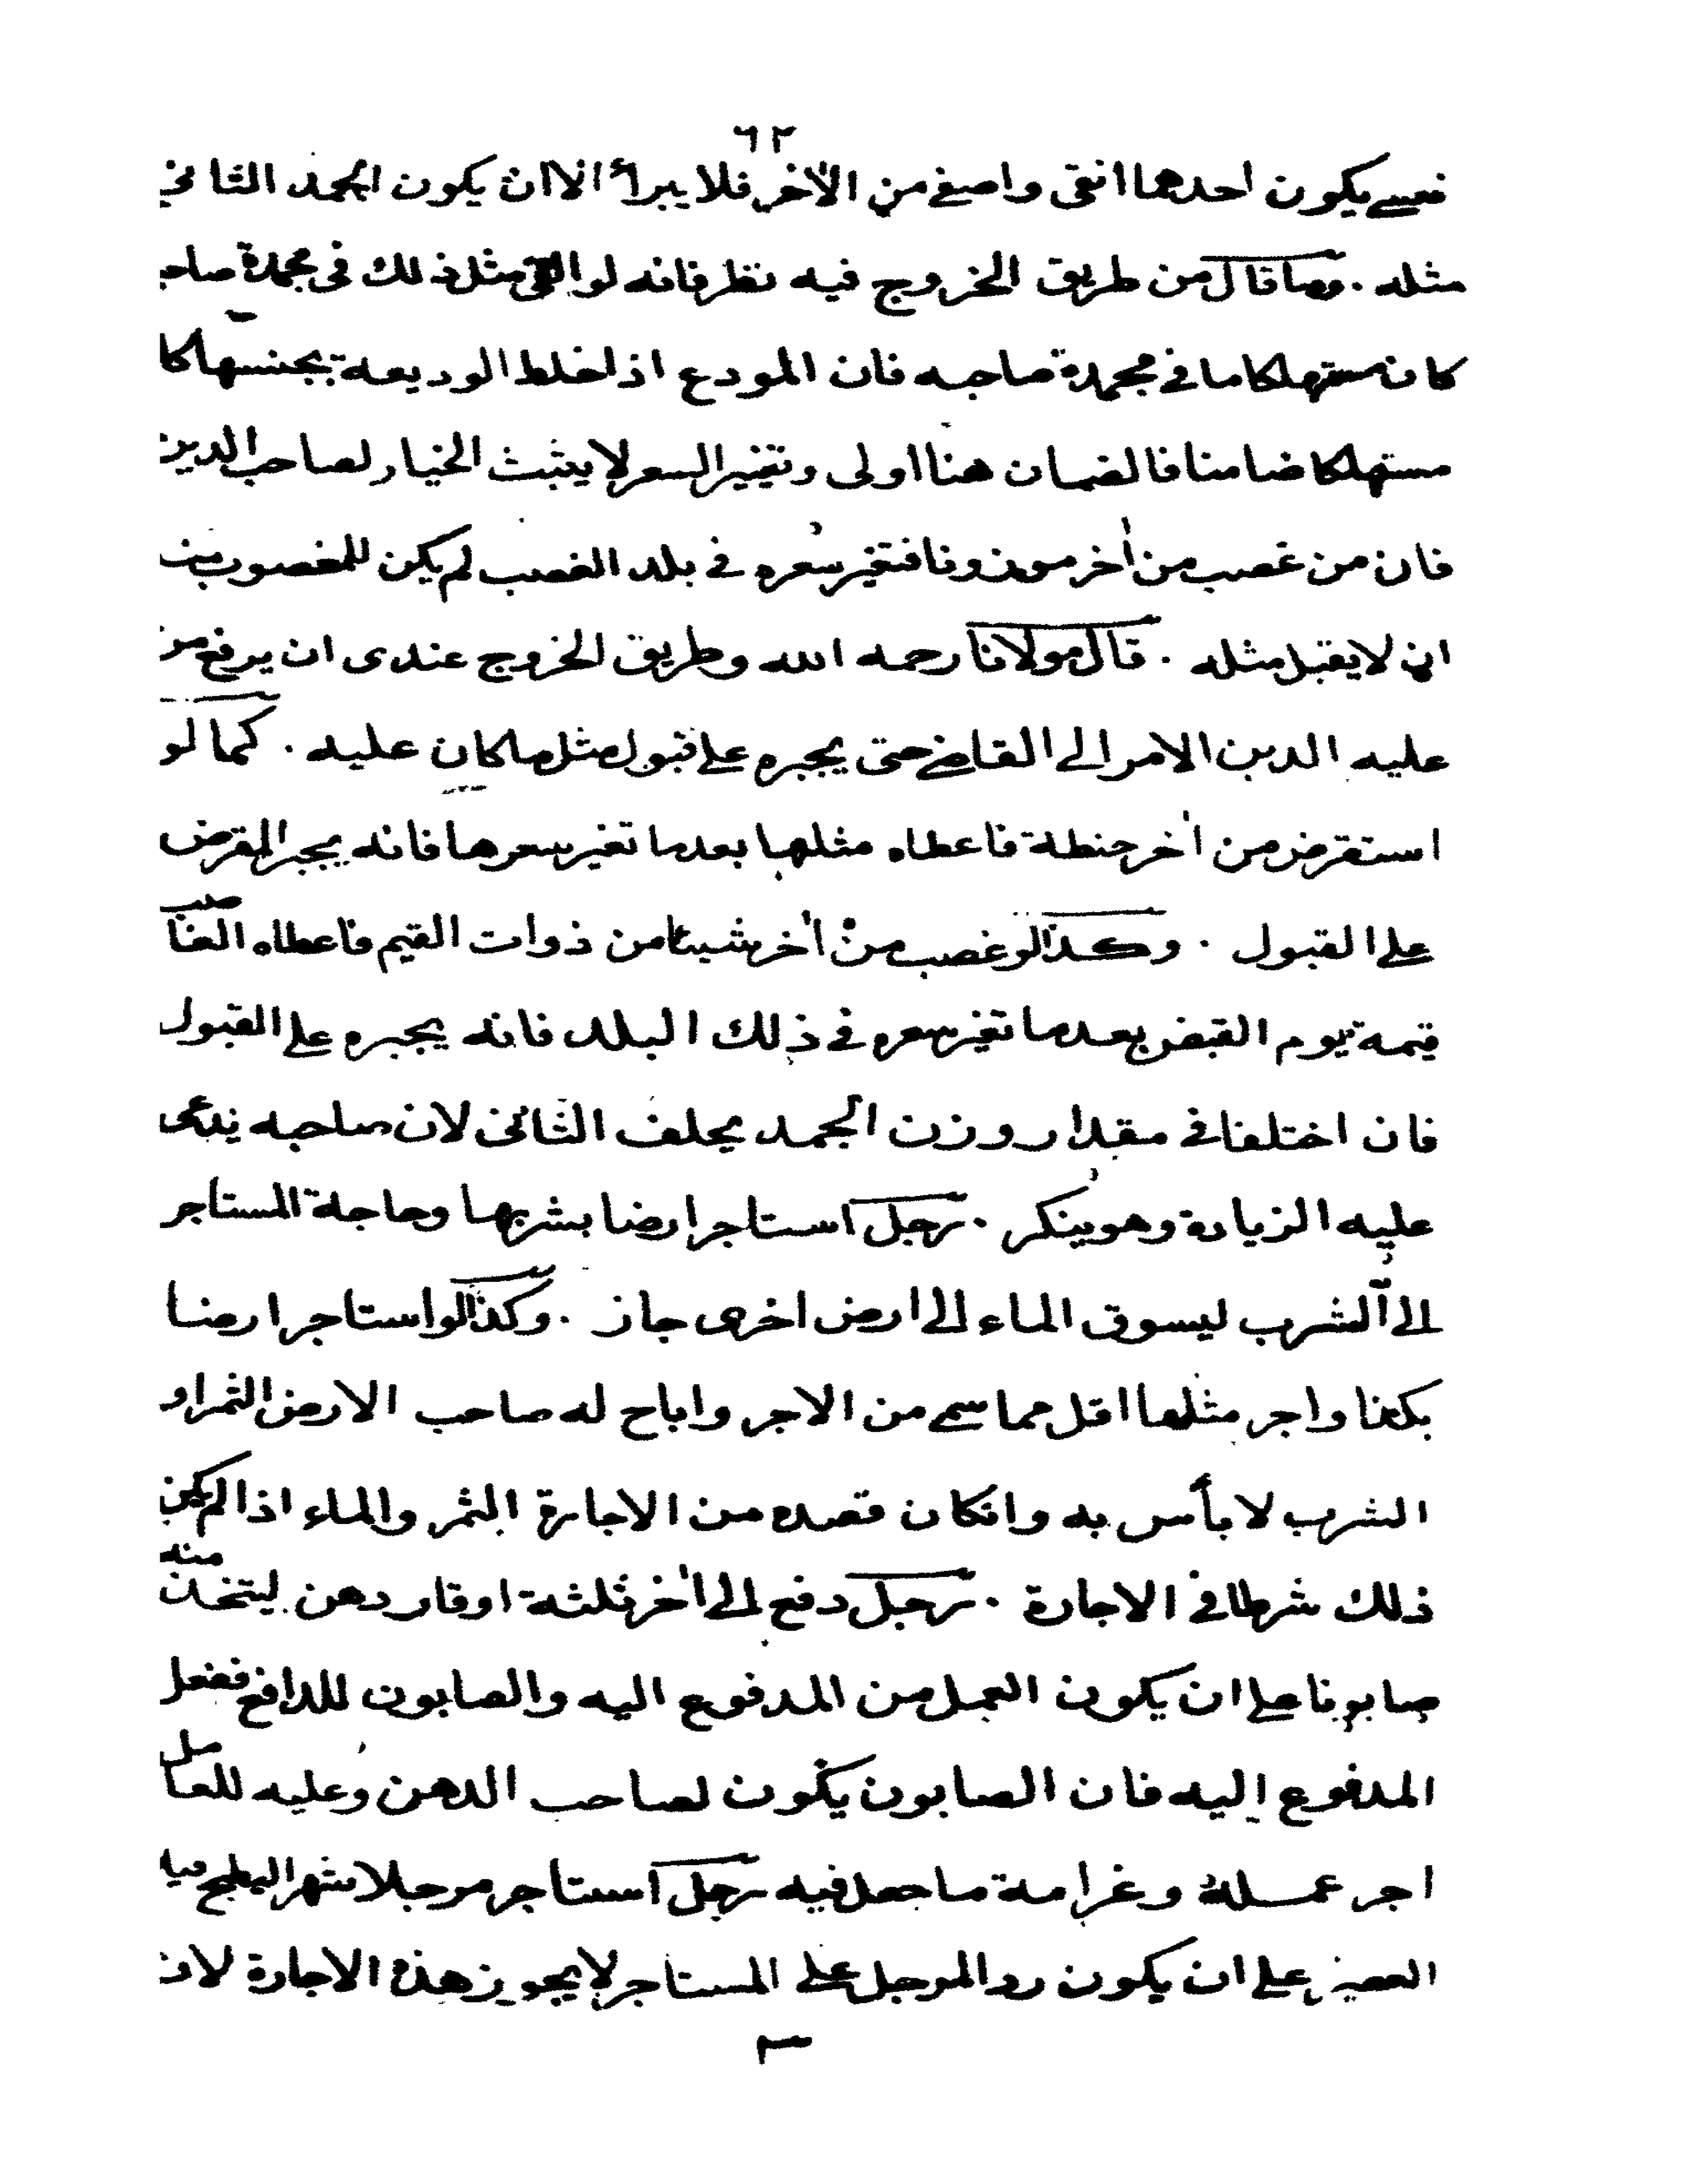 ٦٢
فعسى يكون احدهما انقى واصفى من الاٰخر فلا يبرأ الا ان يكون الجمد الثاني
مثله . وما قال من طريق الخروج فيه نظر فانه لو القى مثل ذلك في مجمدة صاحبه
كان مستهلكا ما في مجمدة صاحبه فان المودع اذا خلط الوديعة بجنسها كان
مستهلكا ضامنا فالضمان هنا اولى وتغير السعر لا يثبت الخيار لصاحب الدين
فان من غصب من اٰخر موزونا فتغير سعره في بلد الغصب لم يكن للمغصوب منه
ان لا يقبل مثله . قال مولانا رحمه الله وطريق الخروج عندى ان يرفع من
عليه الدين الامر الى القاضي حتى يجبره على قبول مثل ما كان عليه . كما لو
استقرض من اٰخر حنطة فاعطاه مثلها بعدما تغير سعرها فانه يجبر المقرض
على القبول . وكذا لو غصب من اٰخر شيئا من ذوات القيم فاعطاه الغاصب
قيمة يوم القبض بعدما تغير سعره في ذلك البلد فانه يجبره على القبول
فان اختلفا في مقدار وزن الجمد يحلف الثاني لان صاحبه يدعى
عليه الزيادة وهو ينكر . رجل استاجر ارضا بشربها وحاجة المستاجر
الى الشرب ليسوق الماء الى ارض اخرى جاز . وكذا لو استاجر ارضا
بكذا واجر مثلها اقل مما سمى من الاجر واباح له صاحب الارض الثمر او
الشرب لا بأس به وانكان قصده من الاجارة الثمر والماء اذا لم يكن
ذلك شرطا في الاجارة . رجل دفع الى اٰخر ثلثة اوقار دهن ليتخذ منه
صابونا على ان يكون العمل من المدفوع اليه والصابون للدافع ففعل
المدفوع اليه فان الصابون يكون لصاحب الدهن وعليه للعامل
اجر عمله وغرامة ما جعل فيه رجل استاجر مرجلا شهرا ليطبخ فيه
العصير على ان يكون رد المرجل على المستاجر لا يجوز هذه الاجارة لان